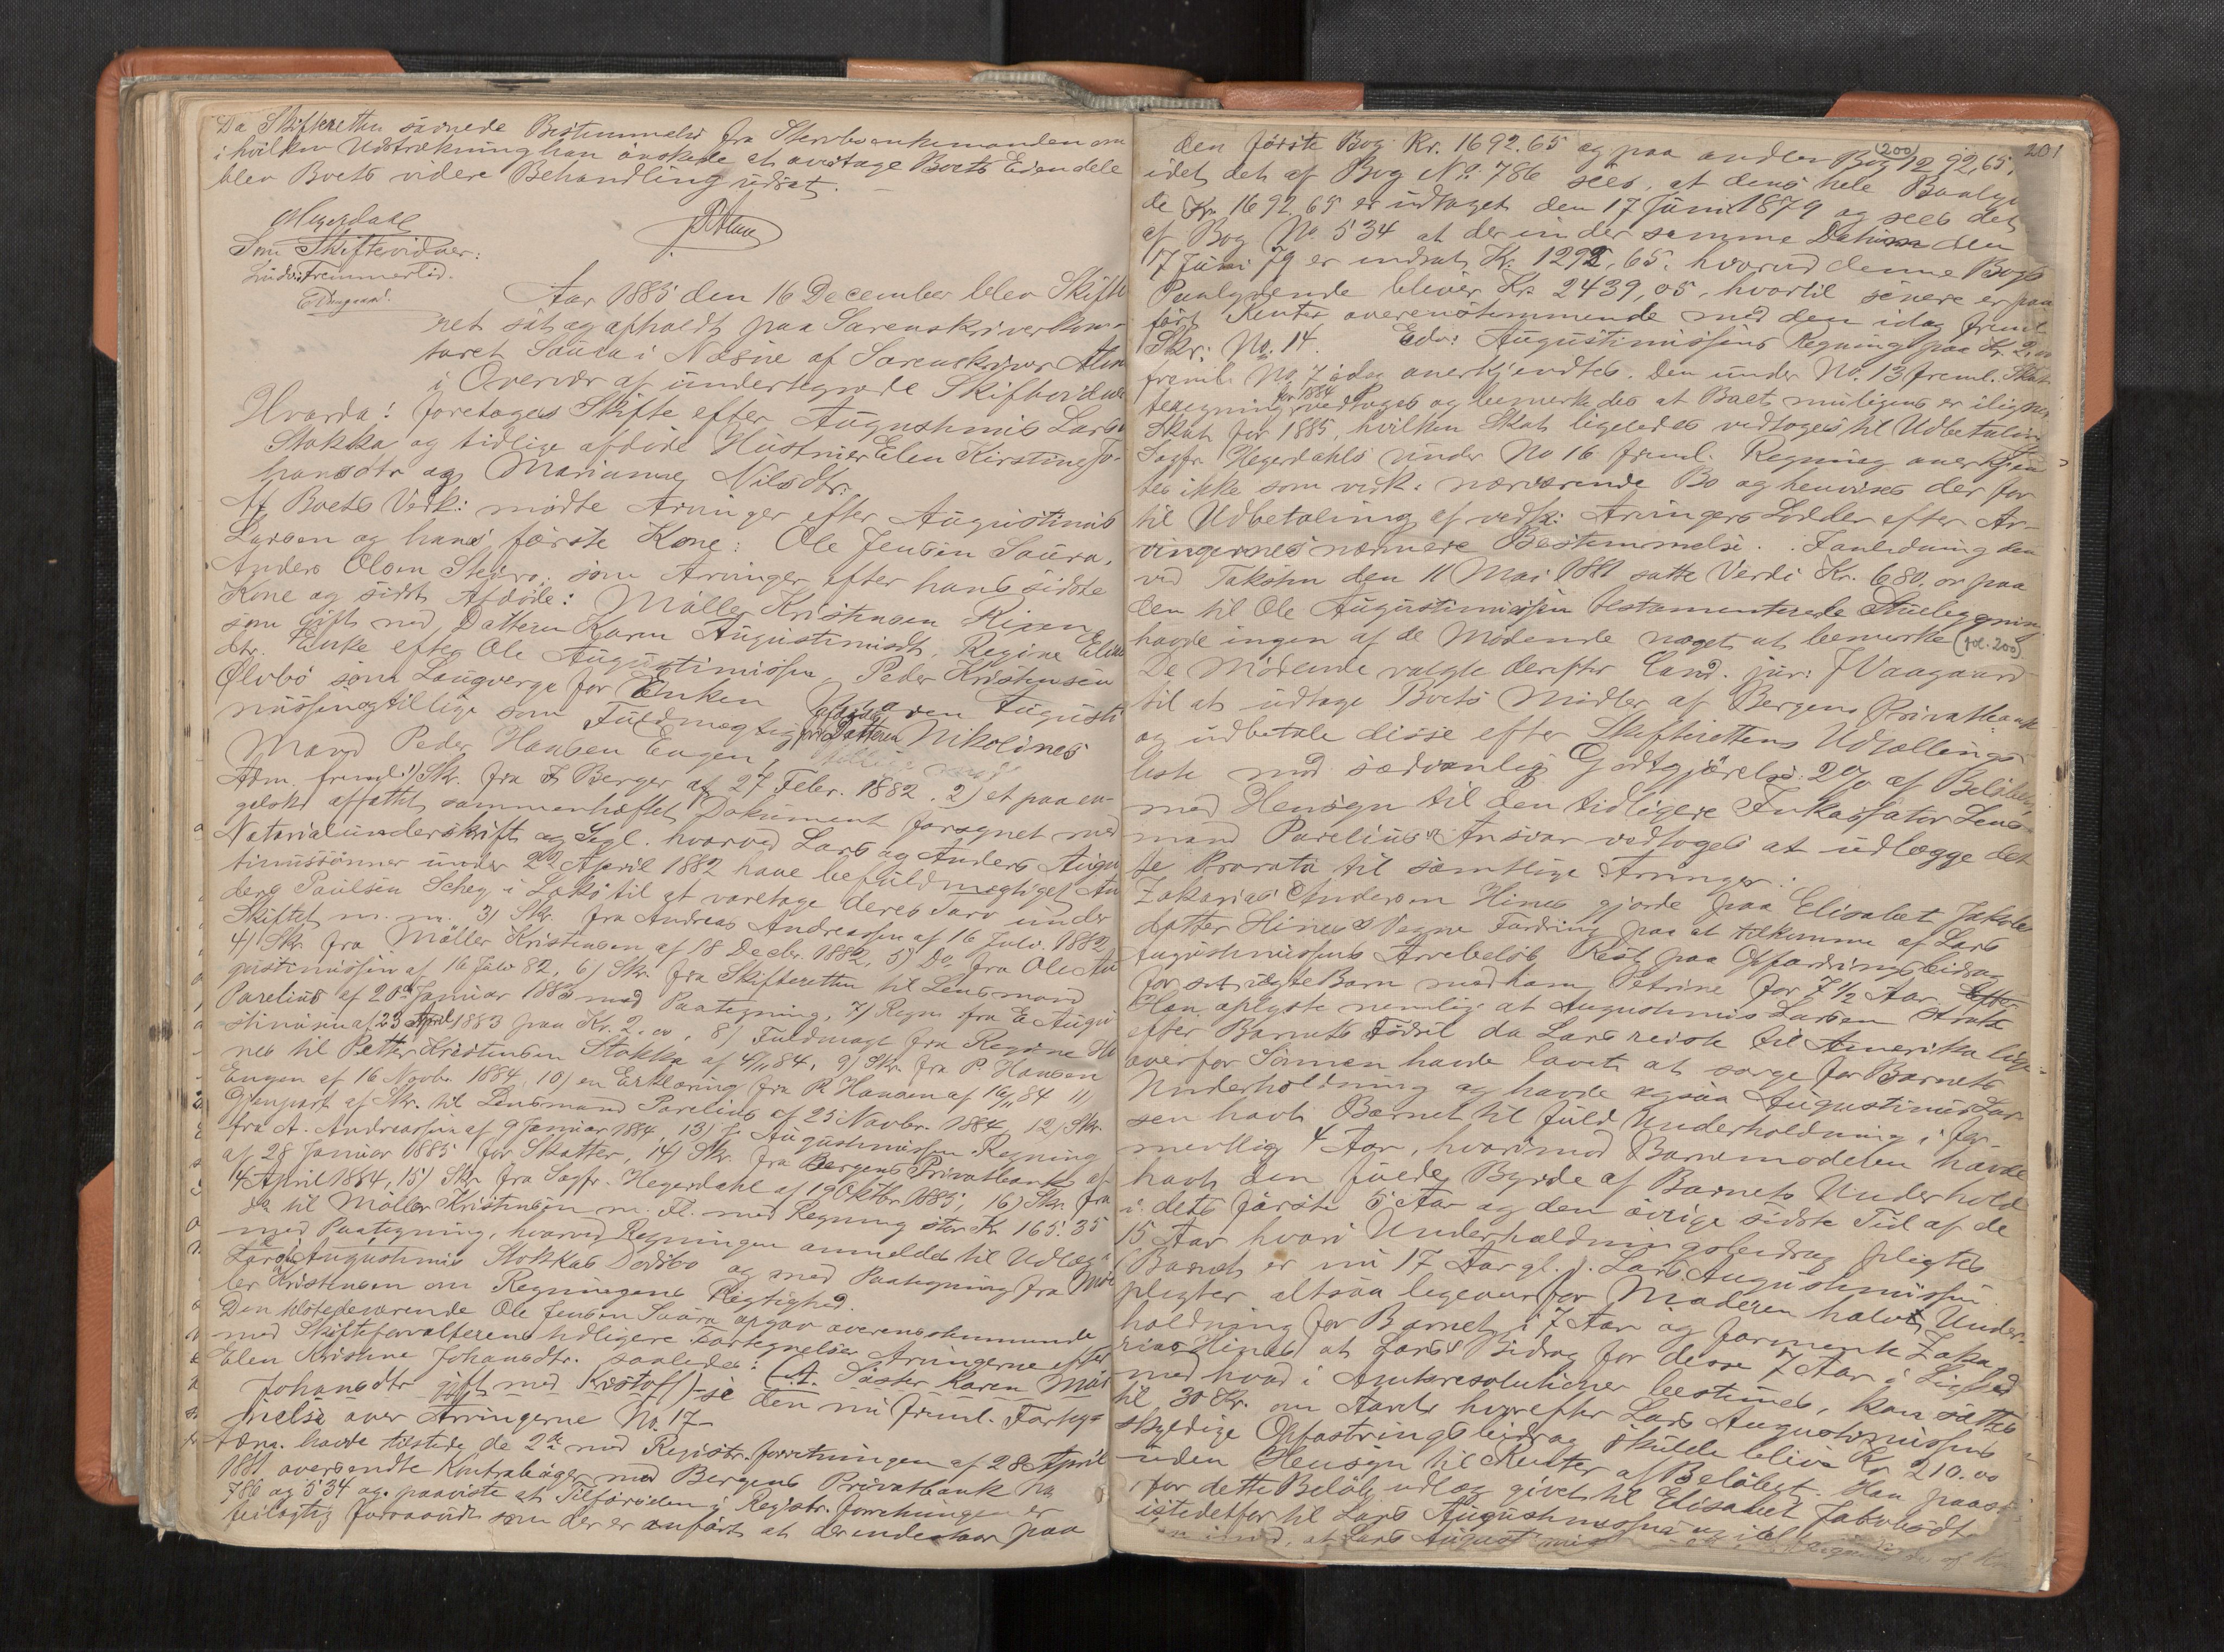 Da Skifteretten savnede Bestemmelse fra Stervboenkemanden om
i hvilken Udstrækning han ønskede at overtage Boets Eiendele
blev Boets videre Behandling udsat.
Som Skiftevidner:
Aar 1885 den 16 December blev Skifte
ret sat og afholdt paa Sorenskriverkon-
toret Saura i Næsne af Sorenskriver
i Overvær af undertegnede Skiftevidner
Hvorda: foretoges Skifte efter Augustinus Larsen
Stokka og tidlige afdøde Hustruer Elen Kirstine Jo-
hansdtr og Marianne Nilsdtr.
Af Boets Vedk: mødte Arvinger efter Augustinus
Larsen og hans første Kone: Ole Jensen Saura,
Anders Olsen; som Arvinger efter hans sidste
Kone og sidst Afdøde: Møller Kristensen
som gift med Datteren Karen Augustinusdt, Regine
dtr. Enke efter Ole Augustinussen, Peder Kristensen
som Laugverge for Enken
nussen og tillige som Fuldmægtig for Datteren Nikolines
Mand Peder Hansen Engen,
Adm. freml. 1) Skr. fra Berger af 27 Febr. 1882. 2) et paa en-
gelsk affattet sammenhæftet Dokument forsynet med
Notarialunderskrift og Segl. hvorved Lars og Anders Augu
tinussønner under April 1882 have befuldmægtiget An
ders Paulsen i til at varetage deres Tarv under
Skiftet m. m. 3) Skr. fra Andreas Andreassen af 16 1882
4) Skr. fra Møller Kristensen af 18 Decbr. 1882, 5) Do. fra Ole Au
gustinussen af 16 82, 6) Skr. fra Skifteretten til Lensmand
Parelius af 20de Januar 1883 med Paategning, 7) Regn. fra E Augu
stinusen af 23 April 1883 paa Kr. 2.00, 8) Fuldmagt fra Regine
nes til Petter Kristensen Stokka af 4/11 84, 9) Skr. fra P. Hansen
Engen af 16 Novbr. 1884, 10) en Erklæring fra P. Hansen af 16/11 84 11)
Gjenpart af Skr. til Lensmand Parelius af 25 Novbr. 1884, 12) Skr.
fra A. Andreassen af 9 Januar 1884, 13) Augustinussen Regning
af 28 Januar 1885 for Skatter, 14) Skr. fra Bergens Privatbank af
14 April 1884, 15) Skr. fra Sagfr. Hegerdahl af 19 Oktbr. 1885, 16) Skr. fra
til Møller Kristensen m. Fl. med Regning stor Kr 165.35
med Paategning, hvorved Regningen anmeldes til Udlæg
i Augustinus Stokkas Dødsbo og med Paategning fra Møl
ler Kristensen om Regningens Rigtighed.
Den tilstedeværende Ole Jensen Saura opgav overensstemmende
med Skifteforvalterens tidligere Fortegnelse Arvingerne efter
Elen Kristine Johansdtr. saaledes: (A. Søster Karen
Johansdtr gift med Kristoff) - se den nu freml. Forteg-
nelse over Arvingerne No. 17 -
havde tilstede de 2de med Registr. forretningen af 28 April
1881 oversendte Kontrabøger med Bergens Privatbank No
786 og 534 og paaviste at Tilførselen i Registr. forretningen er
feilagtig forsaavidt som der er anført at der indestaar paa
201
den første Bog Kr. 1692.65 og paa anden Bog (200) 1292,65,
idet det af Bog No. 786 sees, at dens hele Paalyd
de Kr. 1692.65 er udtaget den 17 Juni 1879 og sees det
af Bog No. 534 at der under samme Datum den
17 Juni 79 er indsat Kr. 1292,65. hvorved denne Bogs
Paalydende bliver Kr. 2439,05, hvortil senere er paa
ført Renter overensstemmende med den idag freml.
Skr: No. 14. Augustinussens Regning paa Kr. 2,00
freml. No. 7 idag anerkjendtes. Den under No. 13 freml. Skat
teregning for 1884 vedtoges og bemerkedes at Boet muligens er ilignet
Skat for 1885, hvilken Skat ligeledes vedtoges til Udbetaling
Sagfr. Hegerdahls under No 16 freml. Regning anerkjen
tes ikke som vedk. nærværende Bo og henvises der for
til Udbetaling af vedk: Arvingers Lodder efter Ar-
vingernes nærmere Bestemmelse. I anledning den
ved Taksten den 11 Mai 1881 satte Verdi Kr. 680.00 paa
den til Ole Augustinussen testamenterede Stuebygning
havde ingen af de Mødende noget at bemerke (fol. 200)
De Mødende valgte derefter Cand. jur: J Vaagaard
til at udtage Boets Midler af Bergens Privatbank
og udbetale disse efter Skifterettens Udlodnings
liste mod sædvanlig Godtgjørelse 2% af Beløbet
med Hensyn til den tidligere Inkassator Lens-
mand Parelius's Ansvar vedtoges at udlægge det
te Prorata til samtlige Arvinger.
Zakarias Anderson Hines gjorde paa Elisabet Jakobs
datter Hines's Vegne Fordring paa at tilkomme af Lars
Augustinussens Arvebeløb Rest paa Opfostringsbidrag
for sit uægte Barn med ham, Petrine for 7 1/2 Aar.
Han oplyste nemlig at Augustinus Larsen straks
efter Barnets Fødsel da Lars reiste til Amerika lige-
overfor Sønnen havde lovet at sørge for Barnets
Underholdning og havde ogsaa Augustinus Lar
sen havt Barnet til fuld Underholdning i for-
mentlig 4 Aar, hvorimod Barnemoderen havde
havt den fulde Byrde af Barnets Underhold
i dets første 5 Aar og den øvrige sidste Tid af de
15 Aar hvori Underholdningsbidrag pligtes
(Barnet er nu 17 Aar gl.). Lars Augustinussen
pligter altsaa ligeoverfor Moderen halvt Under-
holdning for Barnet i 7 Aar og formente Zaka
rias Hines at Lars's Bidrag for disse 7 Aar i Lighed
med hvad i Amtsresolutioner bestemmes, kan sættes
til 30 Kr. om Aaret hvorefter Lars Augustinussens
skyldige Opfostringsbidrag skulde blive Kr 210.00
uden Hensyn til Renter af Beløbet. Han paastod
for dette Beløb udlæg givet til Elisabet Jakobsdt
istedetfor til Lars Augustinussen
at Lars Augustinus